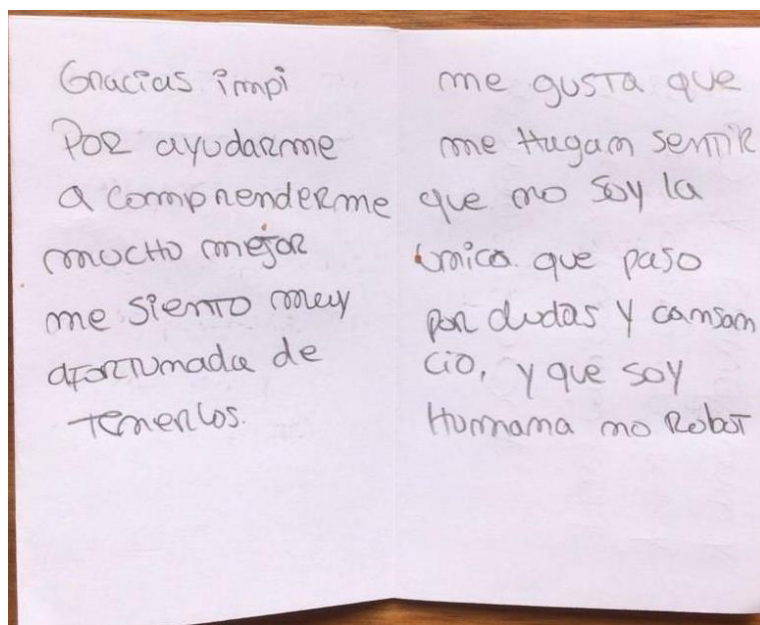 Gracias impi
Por ayudarme
a comprenderme
mucho mejor
me siento muy
afortunada de
tenerlos.
me gusta que
me Hagan sentir
que no soy la
única que paso
por dudas y cansan
cio, y que soy
Humana no Robot